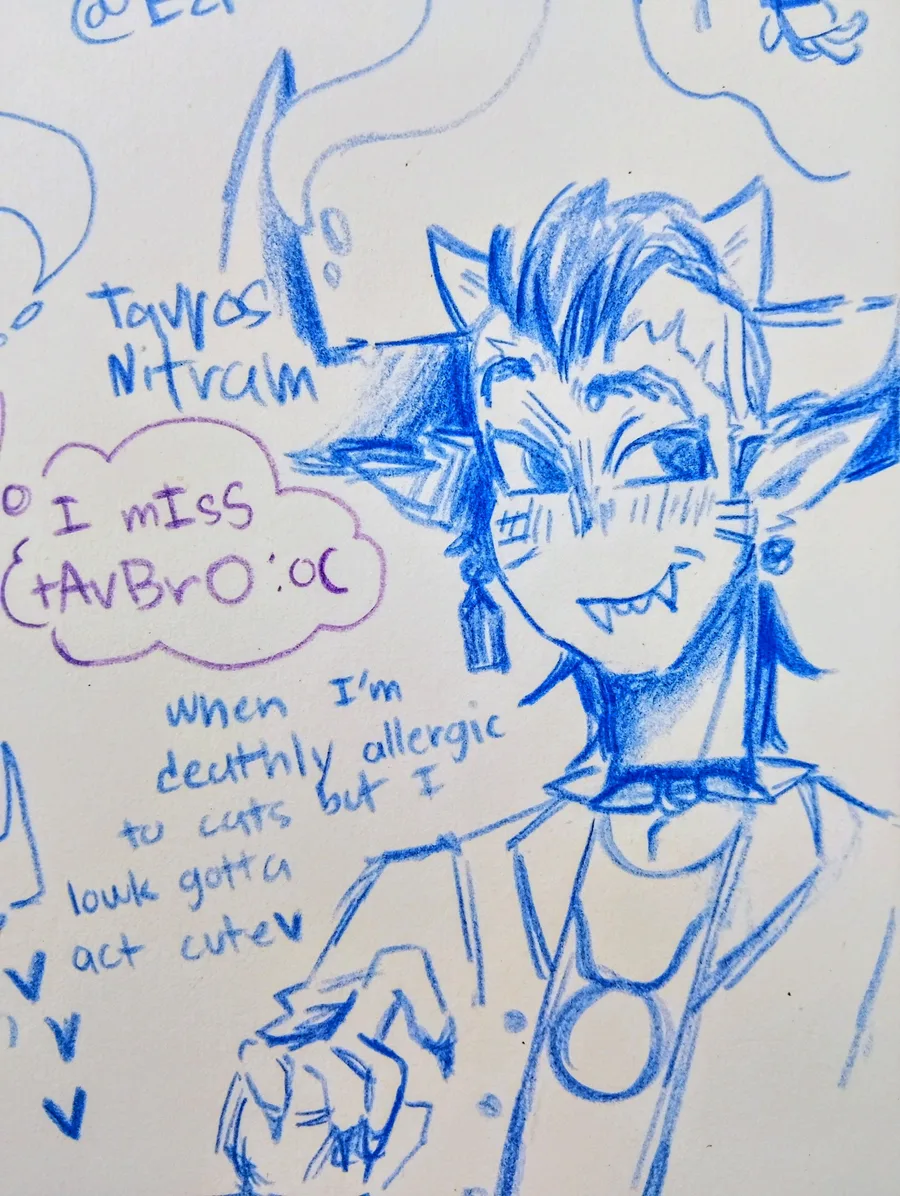 Tavros
Nitram
I mIsS
tAvBrO :o(
when I'm
deathly allergic
to cats but I
lowk gotta
act cute